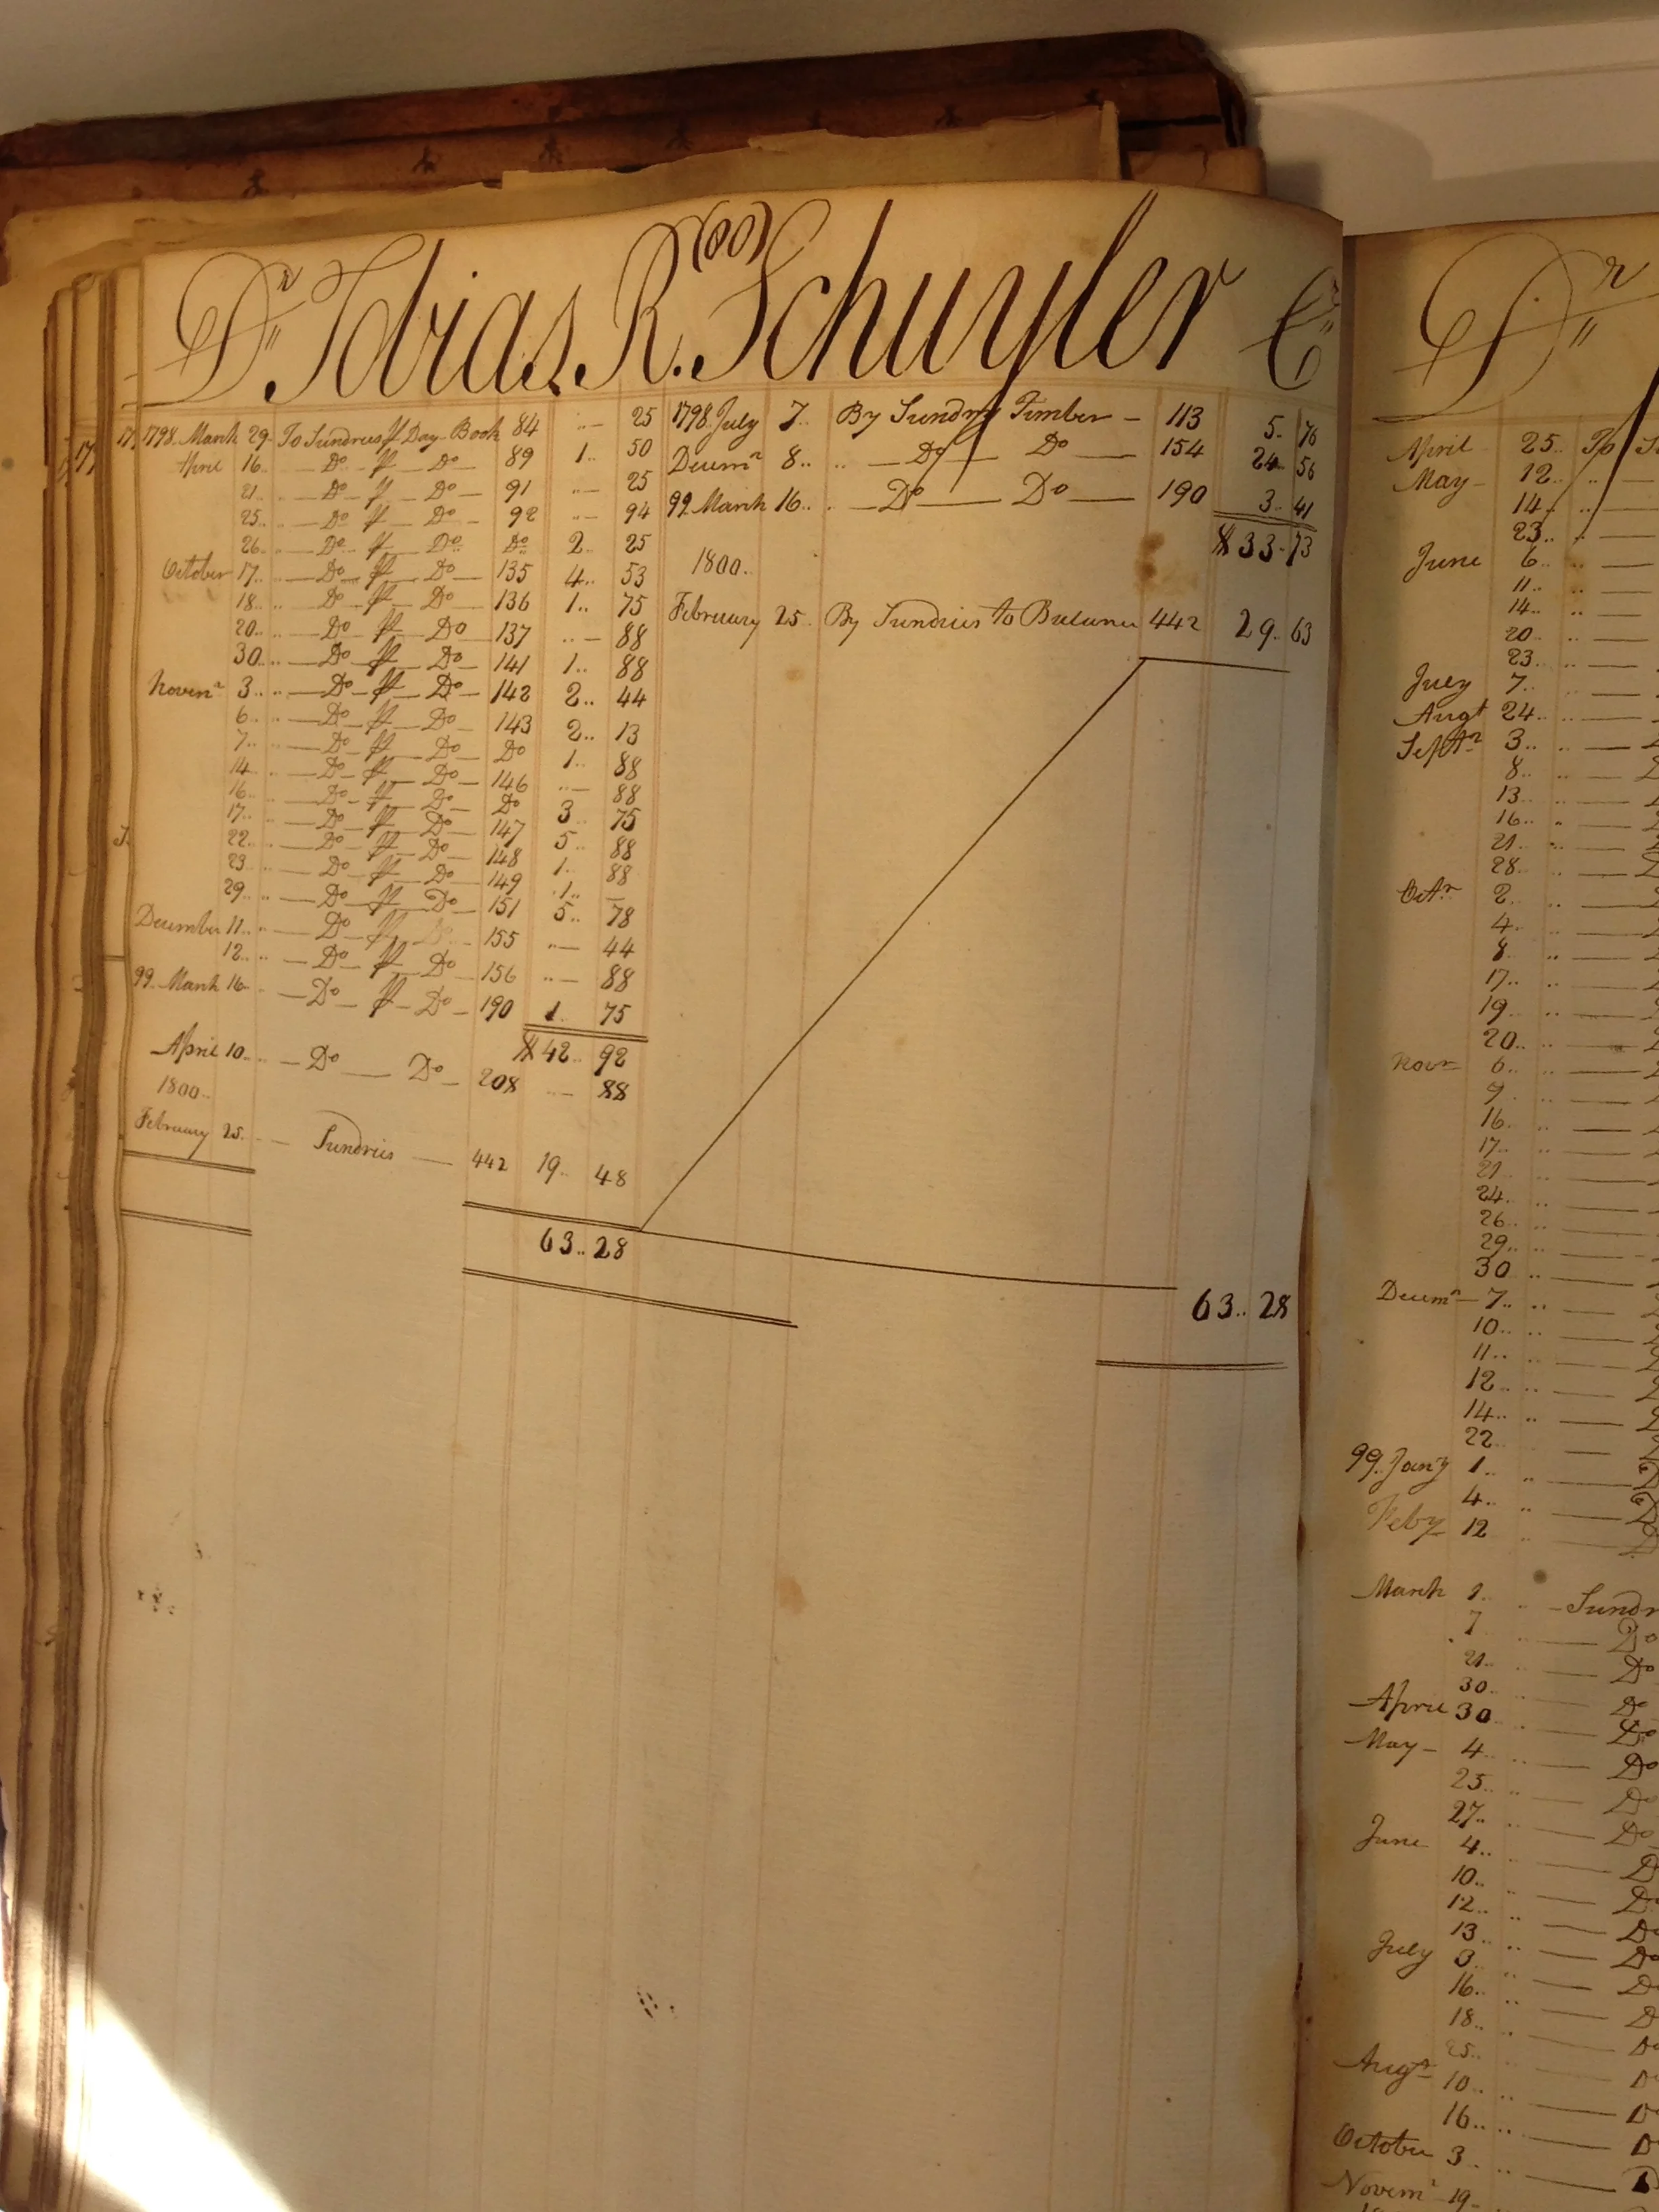 (60)
Dr. Tobias. R. Schuyler Cr
1798. March 29. To Sundries ⅌ Day Book 84 .. — 25
April 16 .. — Do — ⅌ — Do — 89 1.. 50
21 .. — Do — ⅌ — Do — 91 .. — 25
25 .. — Do ⅌ — Do — 92 .. — 94
26 .. — Do — ⅌ — Do Do 2.. 25
October 17 .. — Do — ⅌ — Do — 135 4.. 53
18 .. — Do — ⅌ — Do — 136 1.. 75
20 .. — Do — ⅌ — Do — 137 .. — 88
30 .. — Do — ⅌ — Do — 141 1.. 88
Novemr 3 .. — Do — ⅌ — Do — 142 2.. 44
6 .. — Do — ⅌ — Do — 143 2.. 13
7 .. — Do — ⅌ — Do Do 1.. 88
14 .. — Do — ⅌ — Do — 146 .. — 88
16 .. — Do — ⅌ — Do — Do 3.. 75
17 .. — Do — ⅌ — Do — 147 5.. 88
22 .. — Do — ⅌ — Do — 148 1.. 88
23 .. — Do — ⅌ — Do — 149 1.. —
29 .. — Do — ⅌ — Do — 151 5.. 78
December 11 .. — Do — ⅌ — Do — 155 .. — 44
12 .. — Do — ⅌ — Do — 156 .. — 88
99 March 16 — Do — ⅌ — Do — 190 1. 75
$ 42.. 92
April 10 .. — Do — Do — 208 .. — 88
1800..
February 25. — Sundries — 442 19.. 48
63.. 28
1798 July 7.. By Sundry Timber — 113 5. 76
Decemr 8.. .. — Do — Do — 154 24.. 56
99 March 16.. . — Do — Do — 190 3.. 41
$ 33. 73
1800.
February 25. By Sundries to Balance 442 29. 63
63.. 28
Dr
April 25.. To
May — 12.. .. —
14.. .. —
23.. .. —
June 6.. .. —
11.. .. —
14.. .. —
20.. .. —
23.. .. —
July 7.. .. —
Augt 24.. .. —
Septr 3.. .. —
8.. .. —
13.. .. —
16.. .. —
21.. .. —
28.. .. —
Octr 2.. .. —
4.. .. —
8.. .. —
17.. .. —
19.. .. —
20.. .. —
Novr 6.. .. —
9.. .. —
16.. .. —
17.. .. —
21.. .. —
24.. .. —
26.. .. —
29.. .. —
30 .. —
Decemr — 7.. .. —
10.. .. —
11.. .. —
12.. .. —
14.. .. —
22.. —
99. Jany 1.. .. —
4.. .. —
Feby 12 .. —
March 1. .. — Sundr
7 .. — Do
21.. .. — Do
30.. .. — Do
April 30 .. — Do
May — 4 .. — Do
25.. .. — Do
27.. .. — Do
June 4.. .. — D
10.. .. — D
12.. .. — Do
13 .. — Do
July 3.. .. — D
16.. .. — D
18.. .. — D
25.. .. — D
Augt 10.. .. — D
16.. .. — D
October 3.. .. — D
Novemr — 19 —